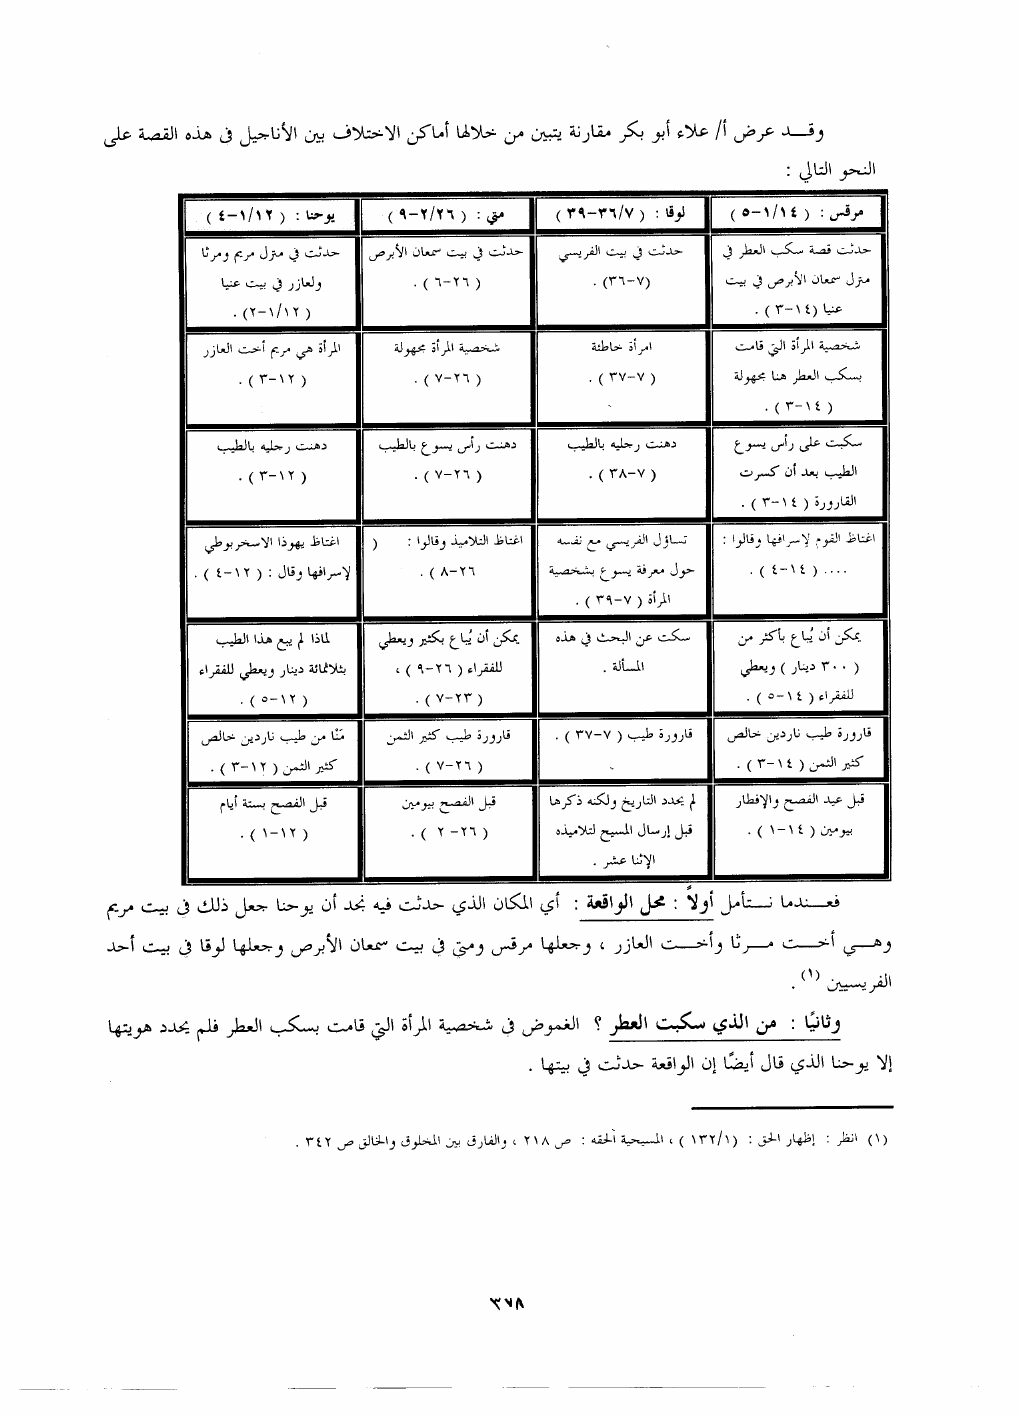 وقد عرض أ/ علاء أبو بكر مقارنة يتبين من خلالها أماكن الاختلاف بين الأناجيل في هذه القصة على
النحو التالي :
مرقس : ( ١/١٤-٥ )
لوقا : ( ٣٦/٧-٣٩ )
متى : ( ٢/٢٦-٩ )
يوحنا : ( ١/١٢-٤ )
حدثت قصة سكب العطر في
منزل سمعان الأبرص في بيت
عنيا (١٤-٣ ) .
حدثت في بيت الفريسي
(٧-٣٦) .
حدثت في بيت سمعان الأبرص
( ٢٦-٦ ) .
حدثت في منزل مريم ومرثا
ولعازر في بيت عنيا
( ١/١٢-٢) .
شخصية المرأة التي قامت
بسكب العطر هنا مجهولة
( ١٤-٣ ) .
امرأة خاطئة
( ٧-٣٧ ) .
شخصية المرأة مجهولة
( ٢٦-٧ ) .
المرأة هي مريم أخت العازر
( ١٢-٣ ) .
سكبت على رأس يسوع
الطيب بعد أن كسرت
القارورة ( ١٤-٣ ) .
دهنت رجليه بالطيب
( ٧-٣٨ ) .
دهنت رأس يسوع بالطيب
( ٢٦-٧ ) .
دهنت رجليه بالطيب
( ١٢-٣ ) .
اغتاظ القوم لإسرافها وقالوا :
.... ( ١٤-٤ ) .
تساؤل الفريسي مع نفسه
حول معرفة يسوع بشخصية
المرأة ( ٧-٣٩ ) .
اغتاظ التلاميذ وقالوا : (
٢٦-٨ ) .
اغتاظ يهوذا الاسخريوطي
لإسرافها وقال : ( ١٢-٤ ) .
يمكن أن يُباع بأكثر من
( ٣٠٠ دينار ) ويعطي
للفقراء ( ١٤-٥ ) .
سكت عن البحث في هذه
المسألة .
يمكن أن يُباع بكثير ويعطي
للفقراء ( ٢٦-٩ ) ،
( ٢٣-٧ ) .
لماذا لم يبع هذا الطيب
بثلاثمائة دينار ويعطي للفقراء
( ١٢-٥ ) .
قارورة طيب ناردين خالص
كثير الثمن ( ١٤-٣ ) .
قارورة طيب ( ٧-٣٧ ) .
قارورة طيب كثير الثمن
( ٢٦-٧ ) .
مَنًا من طيب ناردين خالص
كثير الثمن ( ١٢-٣ ) .
قبل عيد الفصح والإفطار
بيومين ( ١٤-١ ) .
لم يحدد التاريخ ولكنه ذكرها
قبل إرسال المسيح لتلاميذه
الإثنا عشر .
قبل الفصح بيومين
( ٢٦- ٢ ) .
قبل الفصح بستة أيام
( ١٢-١ ) .
فعندما نتأمل أولاً : محل الواقعة : أي المكان الذي حدثت فيه نجد أن يوحنا جعل ذلك في بيت مريم
وهي أخت مرثا وأخت العازر ، وجعلها مرقس ومتى في بيت سمعان الأبرص وجعلها لوقا في بيت أحد
الفريسيين (١) .
وثانيًا : من الذي سكبت العطر ؟ الغموض في شخصية المرأة التي قامت بسكب العطر فلم يحدد هويتها
إلا يوحنا الذي قال أيضًا إن الواقعة حدثت في بيتها .
(١) انظر : إظهار الحق : (١٣٢/١ ) ، المسيحية ألحقه : ص ٢١٨ ، والفارق بين المخلوق والخالق ص ٣٤٢ .
٣٧٨